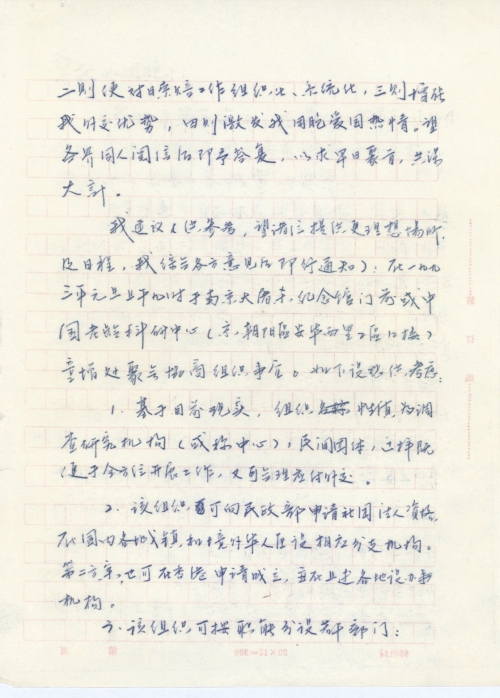 二则使对日索赔工作组织化、系统化，三则增强
我外交优势，四则激发我同胞爱国热情。望
各界同人阅信后即予答复，以求早日聚首，共谋
大計。
我建议（供参考，望诸位提供更理想场所
及日程，我综合各方意见后即行通知）：在一九九
三年元旦上午九时于南京大屠杀纪念馆门前或中
国老龄科研中心（京，朝阳區安华西里
聚会协商组织事宜。如下设想供考虑：
1. 基于目前现实，组织性质值为调
查研究机构（或称中心），民间团体，这样既
便于全方位开展工作，又可合理应付外交。
2. 该组织可向民政部申请社团法人资格，
在国内各地城镇和境外华人区设相应分支机构。
第二方案，也可在香港申请成立，并在上述各地设办事
机构。
3. 该组织可按职能分设若干部门：
20×15=300